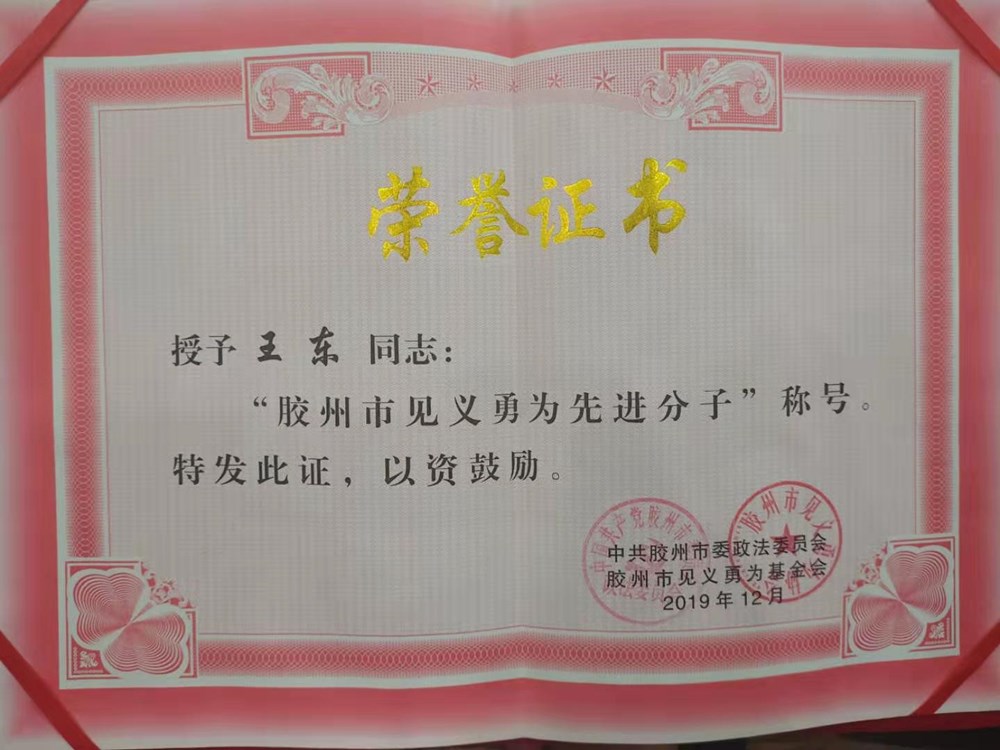 荣誉证书
授予 王东 同志：
“胶州市见义勇为先进分子”称号。
特发此证，以资鼓励。
中共胶州市委政法委员会
胶州市见义勇为基金会
2019年12月